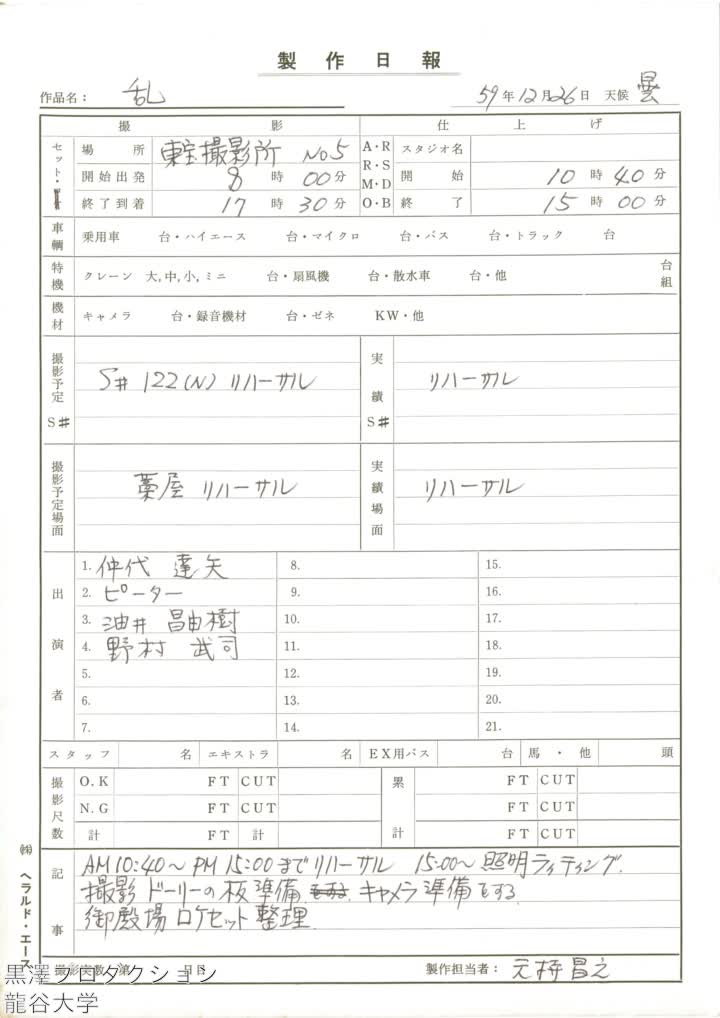 製作日報
作品名： 乱 59年12月26日 天候 曇
撮影 仕上げ
セット・
場所 東宝撮影所 No5 A・R スタジオ名
開始出発 8時00分 R・S M・D 開始 10時40分
終了到着 17時30分 O・B 終了 15時00分
車輌 乗用車 台・ハイエース 台・マイクロ 台・バス 台・トラック 台
特機 クレーン 大,中,小,ミニ 台・扇風機 台・散水車 台・他 台組
機材 キャメラ 台・録音機材 台・ゼネ KW・他
撮影予定 S# S#122(N) リハーサル 実績 S# リハーサル
撮影予定場面 藁屋 リハーサル 実績場面 リハーサル
出演者
1. 仲代達矢 8. 15.
2. ピーター 9. 16.
3. 油井昌由樹 10. 17.
4. 野村武司 11. 18.
5. 12. 19.
6. 13. 20.
7. 14. 21.
スタッフ 名 エキストラ 名 EX用バス 台 馬・他 頭
撮影尺数 O.K FT CUT 累計 FT CUT
N.G FT CUT FT CUT
計 FT 計 FT CUT
記事
AM10:40〜PM15:00までリハーサル 15:00〜照明ライティング.
撮影 ドーリーの板準備. キャメラ準備をする.
御殿場ロケセット整理.
撮影実数 第 日目 製作担当者： 元持昌之
㈱ ヘラルド・エース
黒澤プロダクション
龍谷大学